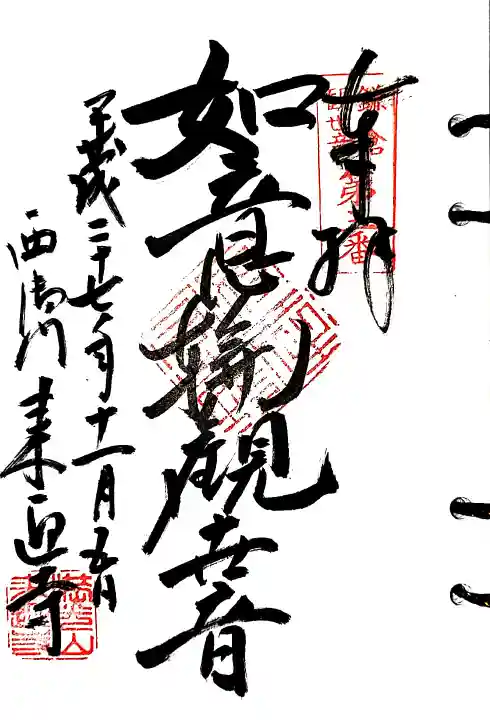 奉拝
鎌倉
観世音第五番
如意輪観世音
平成二十七年十一月五日
西御門 来迎寺